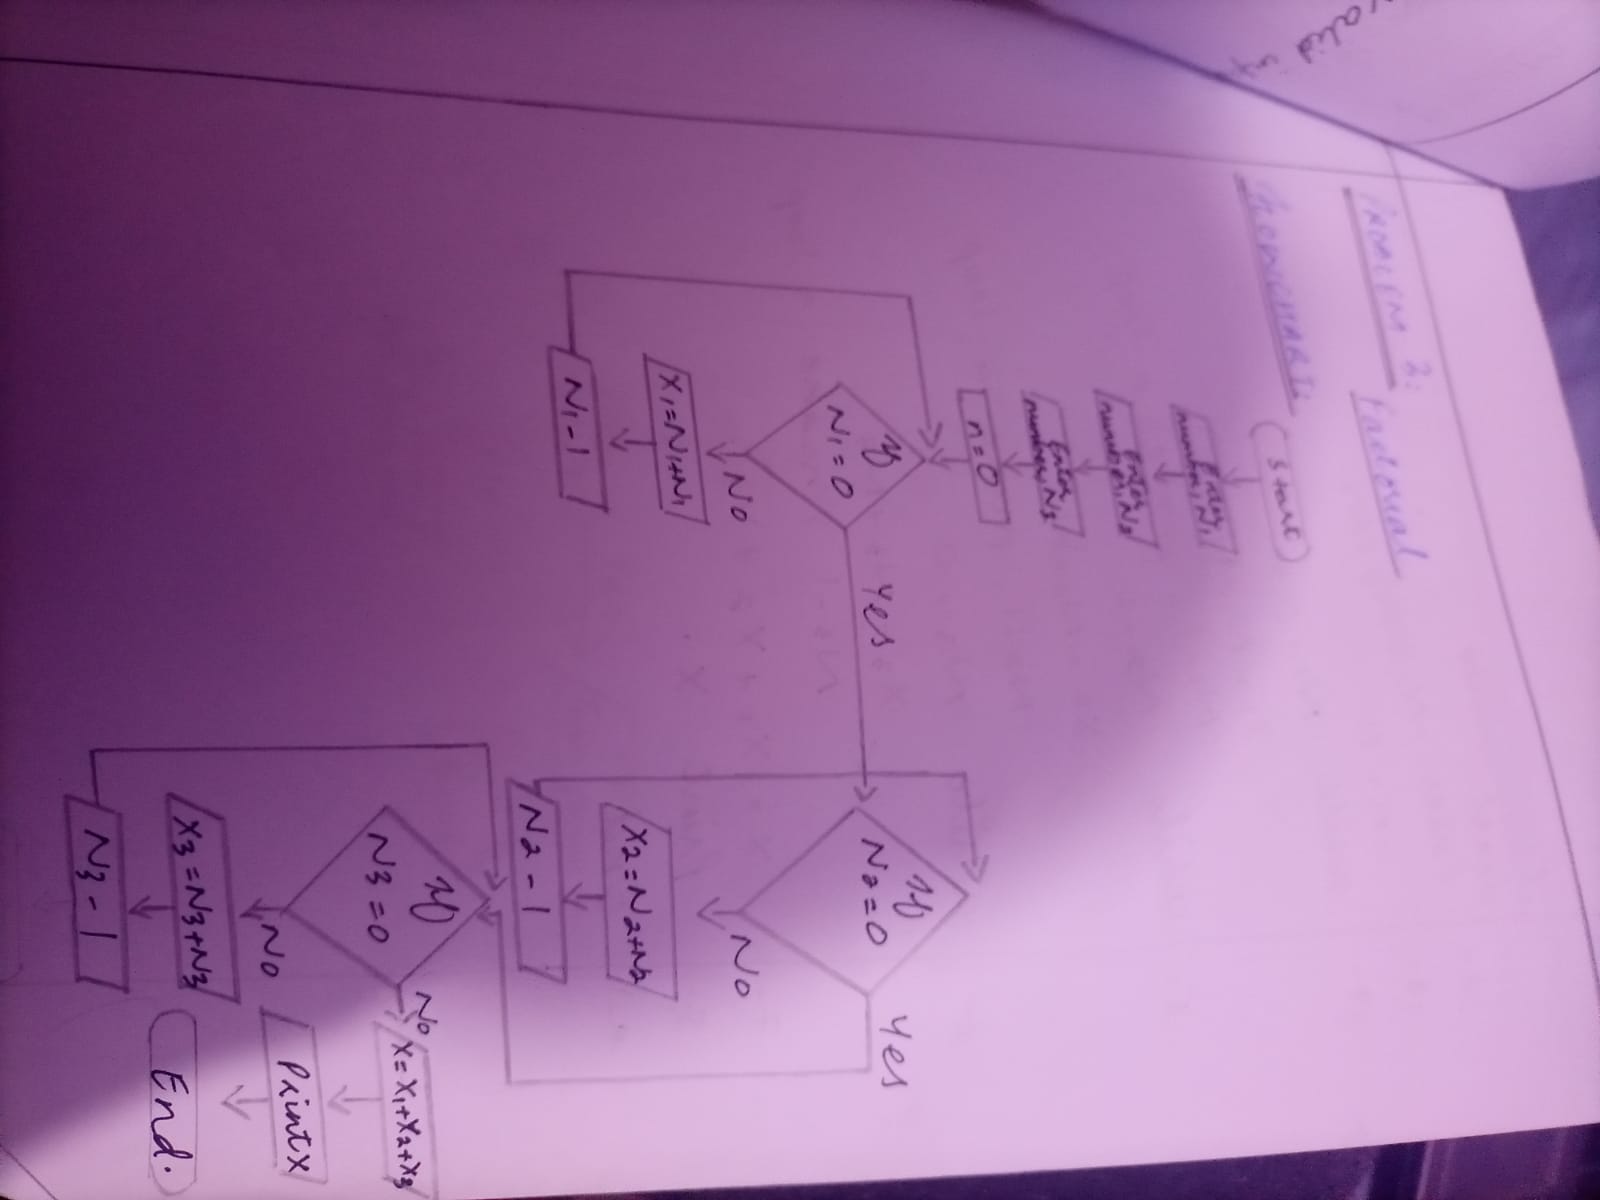 valid if
PROBLEM 2: Factorial
FLOWCHART:
Start
Enter
number N1
Enter
number N2
Enter
number N3
n=0
If
N1=0
Yes
No
X1=N1+N1
N1-1
If
N2=0
Yes
No
X2=N2+N2
N2-1
If
N3=0
No
No
X3=N3+N3
N3-1
X=X1+X2+X3
Print X
End.